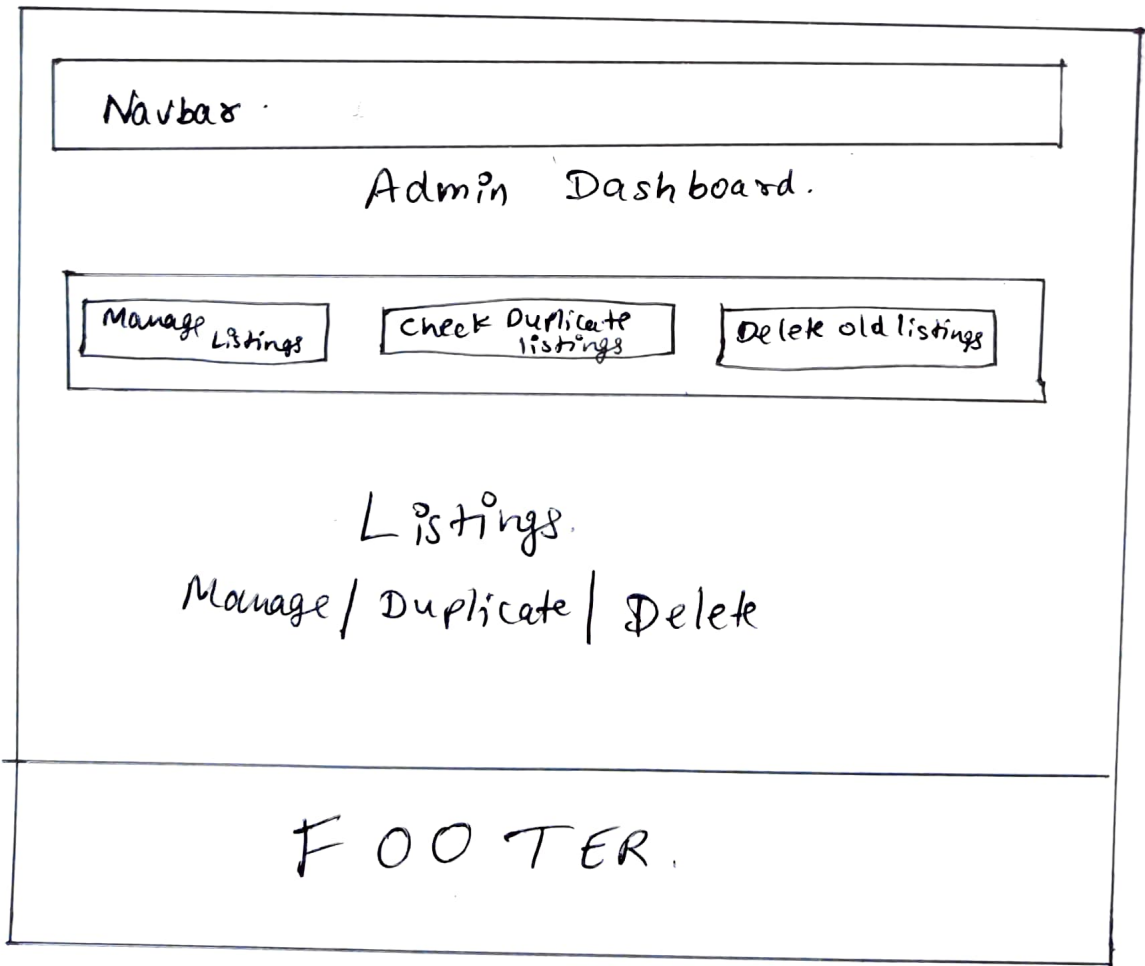 Navbar.
Admin Dashboard.
Manage Listings
Check Duplicate
listings
Delete old listings
Listings.
Manage / Duplicate / Delete
FOOTER.